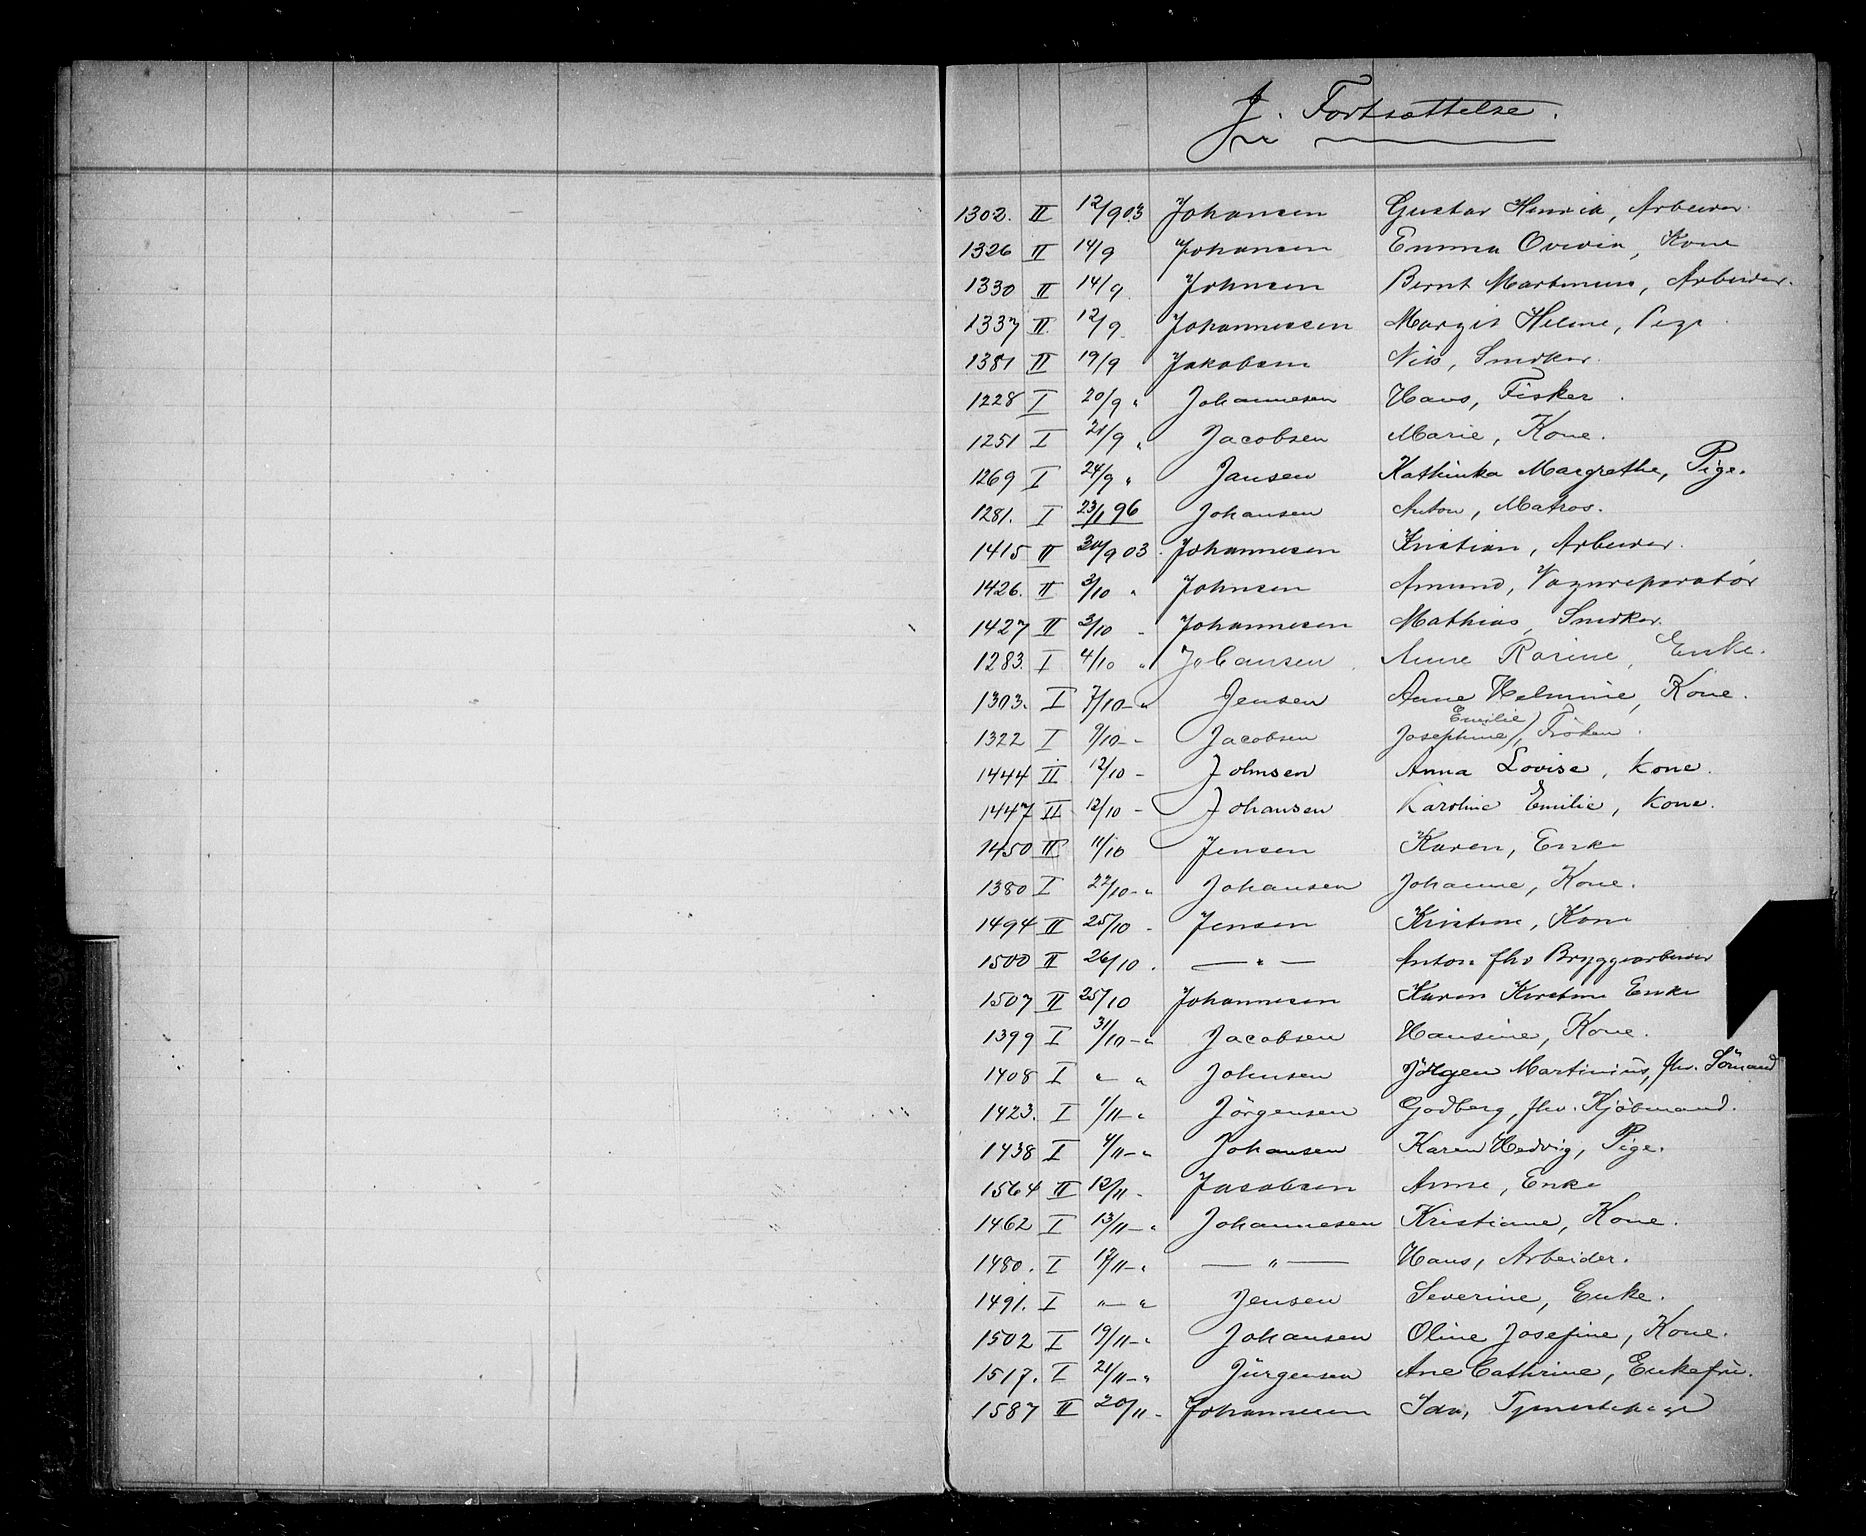 J. Fortsættelse.
1302. II 12/9 03 Johansen Gustav Henrik, Arbeider.
1326 II 14/9 Johansen Emma Ovidia, Kone
1330 II 14/9 Johnsen Bernt Martinius, Arbeider.
1337 II 12/9 Johannessen Margit Helene, Pige
1381 II 19/9 Jakobsen Nils, Snedker.
1228 I 20/9 " Johannesen Hans, Fisker.
1251 I 21/9 " Jacobsen Marie, Kone.
1269 I 24/9 " Jansen Kathinka Margrethe, Pige.
1281. I 23/1 96 Johansen Anton, Matros.
1415 II 30/9 03. Johannesen Kristian, Arbeider.
1426. II 3/10 " Johnsen Amund, Vognreparatör
1427 II 3/10 - Johannesen Mathias, Snedker.
1283. I 4/10 " Johansen. Anne Karine, Enke.
1303. I 7/10 - " Jensen Anne Helmine, Kone.
Emilie
1322 I 9/10 - - Jacobsen Josephine /, Fröken.
1444 II 12/10 - Johnsen Anna Lovise, Kone.
1447 II 12/10 - Johansen Karoline Emilie, Kone.
1450 II 11/10 Jensen Karen, Enke
1380 I 22/10 - " Johansen Johanne, Kone.
1494 II 25/10 - Jensen Kristine, Kone
1500 II 26/10. — " — Anton fhv Bryggearbeider
1507 II 25/10 Johannesen Karen Kirstine Enke
1399 I 31/10 - " Jacobsen Hansine, Kone.
1408 I " " Johnsen Jörgen Martinius, fhv. Sömand
1423. I 1/11 - " Jörgensen Godberg, fhv. Kjöbmand.
1438 I 4/11 - " Johansen Karen Hedvig, Pige.
1564 II 12/11 - Jacobsen Anne, Enke
1462 I 13/11 - " Johannesen Kristiane, Kone.
1480. I 17/11 - " — " — Hans, Arbeider.
1491. I " - " Jensen Severine, Enke.
1502 I 19/11 - " Johansen Oline Josefine, Kone.
1517. I 21/11 - " Jürgensen Ane Cathrine, Enkefru.
1587 II 20/11 - Johannesen Ida, Tjenestepige